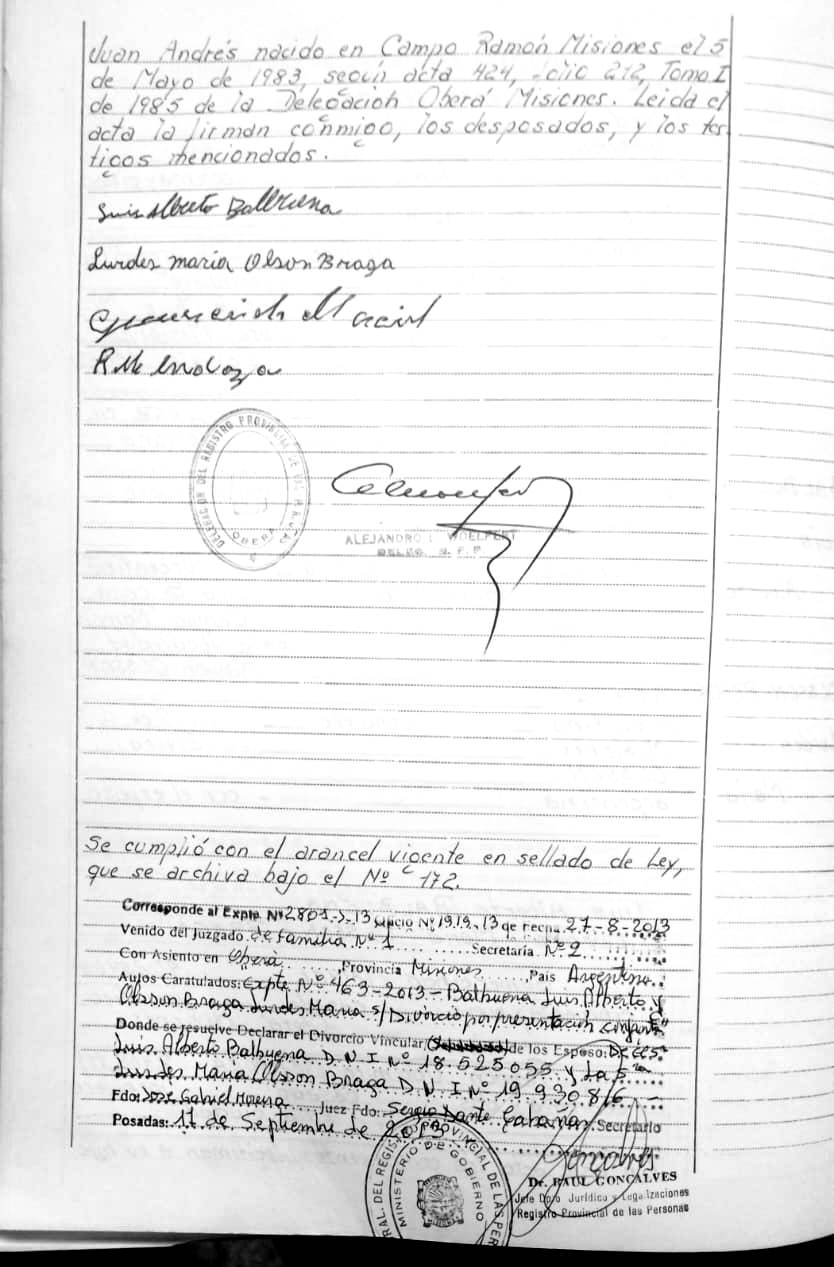 Juan Andrés nacido en Campo Ramón Misiones el 5
de Mayo de 1983, según acta 424, folio 212, Tomo I
de 1985 de la Delegación Oberá Misiones. Leida el
acta la firman conmigo, los desposados, y los tes-
tigos mencionados.
Luis Alberto Balbuena
Lurdes maria Olson Braga
R Mendoza
DELEGACION DEL REGISTRO PROVINCIAL DE LAS PERSONAS
OBERA
ALEJANDRO I. WOELFERT
DELEG. R. P. P.
Se cumplió con el arancel vigente en sellado de Ley,
que se archiva bajo el Nº 172.
Corresponde al Expte. Nº 2801-J-13 Oficio Nº 1919-13 de fecha 27-8-2013
Venido del Juzgado de Familia Nº 1 Secretaría Nº 2
Con Asiento en Oberá, Provincia Misiones, País Argentina.
Autos Caratulados: Expte Nº 463-2013 - Balbuena Luis Alberto y
Olsson Braga Lurdes Maria s/ Divorcio por presentación conjunta"
Donde se resuelve Declarar el Divorcio Vincular de los Esposo:
Luis Alberto Balbuena D.N.I Nº 18.525.055 y
Lurdes Maria Olsson Braga D.N.I Nº 19.930.816 -
Fdo: Jose Gabriel Moreira Juez Fdo: Sergio Dante Cabañas Secretario
Posadas: 11 de Septiembre de
MINISTERIO DE GOBIERNO
Dr. RAUL GONCALVES
Jefe Dpto. Jurídico y Legalizaciones
Registro Provincial de las Personas